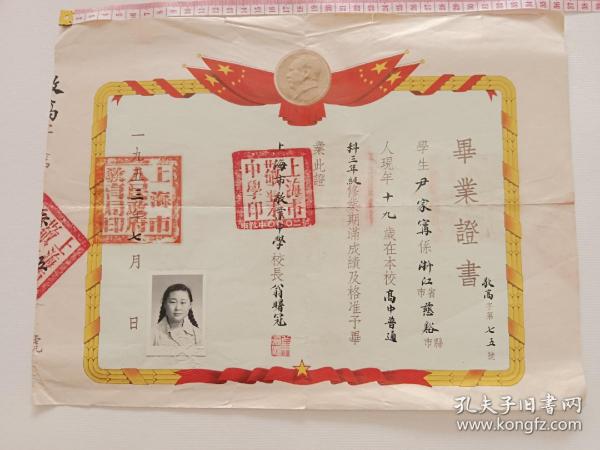 畢業證書
敬高字第七五號
學生尹家寗係浙江省慈谿縣
市市
人現年十九歲在本校高中普通
科三年級修業期滿成績及格准予畢
業此證
上海市敬業中學校長翁曙冠
一九五三年七月 日
上海市
敬業
中學印
上海市
教育局印
孔夫子旧书网
www.kongfz.com